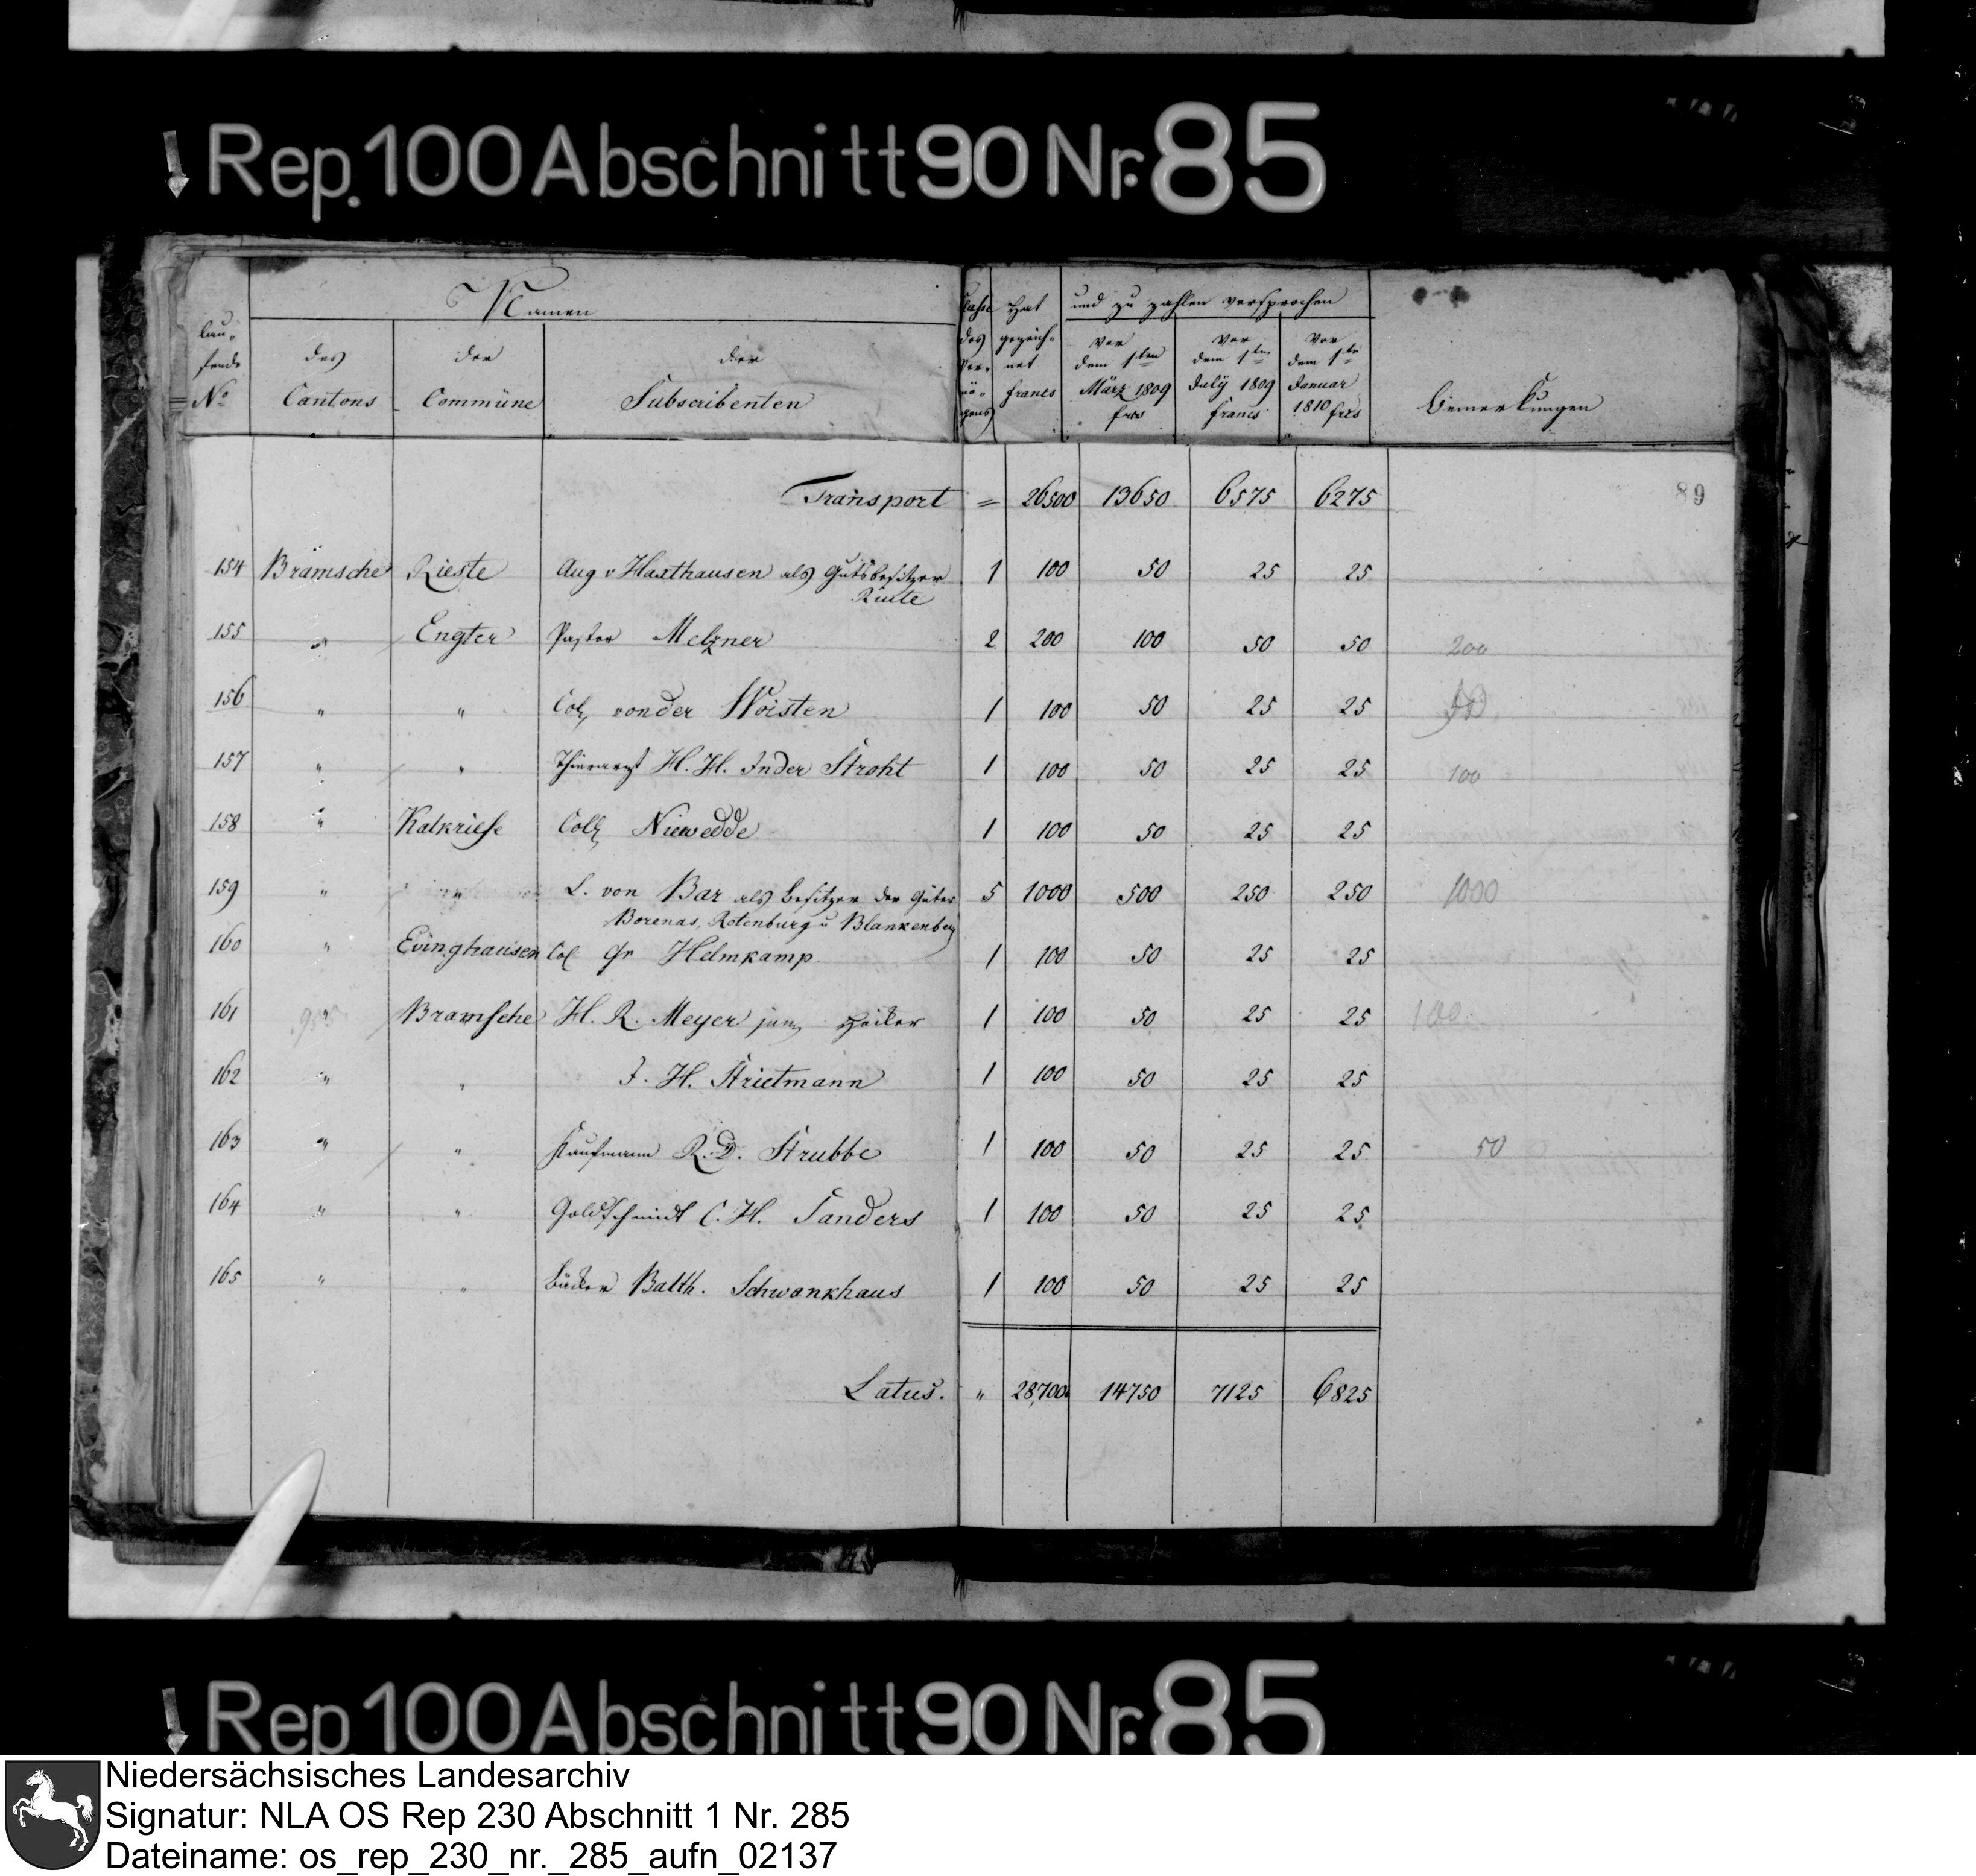 Rep. 100 Abschnitt 90 Nr. 85
Namen
lau-
fende
No
des
Cantons
der
Commüne
der
Subscribenten
Classe
des
Ver-
mö-
gens
Hat
gezeich-
net
francs
und zu zahlen versprochen
vor
dem 1ten
März 1809
frcs
vor
dem 1ten
July 1809
francs
vor
dem 1te
Januar
1810 frcs
Bemerkungen
89
Transport = 26500 13650 6575 6275
154 Bramsche Rieste Aug v Haxthausen als Gutsbesitzer 1 100 50 25 25
155 " Engter Pastor Melzner 2 200 100 50 50 200
156 " " Col von der Woisten 1 100 50 25 25
157 " " Thierarzt H. H. Inder Stroht 1 100 50 25 25 100
158 " Kalkriese Coll Niewedde 1 100 50 25 25
159 " " L. von Bar als Besitzer der Güter 5 1000 500 250 250 1000
Borenas, Rotenburg u Blankenberg
160 " Evinghausen Col Gr Helmkamp 1 100 50 25 25
161 " Bramsche H. R. Meyer jun 1 100 50 25 25 100
162 " " J. H. Strietmann 1 100 50 25 25
163 " " Kaufmann R. D. Strubbe 1 100 50 25 25 50
164 " " Goldschmidt C. H. Sanders 1 100 50 25 25
165 " " Bäcker Balth. Schwankhaus 1 100 50 25 25
Latus. " 28,700 14750 7125 6825
Rep. 100 Abschnitt 90 Nr. 85
Niedersächsisches Landesarchiv
Signatur: NLA OS Rep 230 Abschnitt 1 Nr. 285
Dateiname: os_rep_230_nr._285_aufn_02137